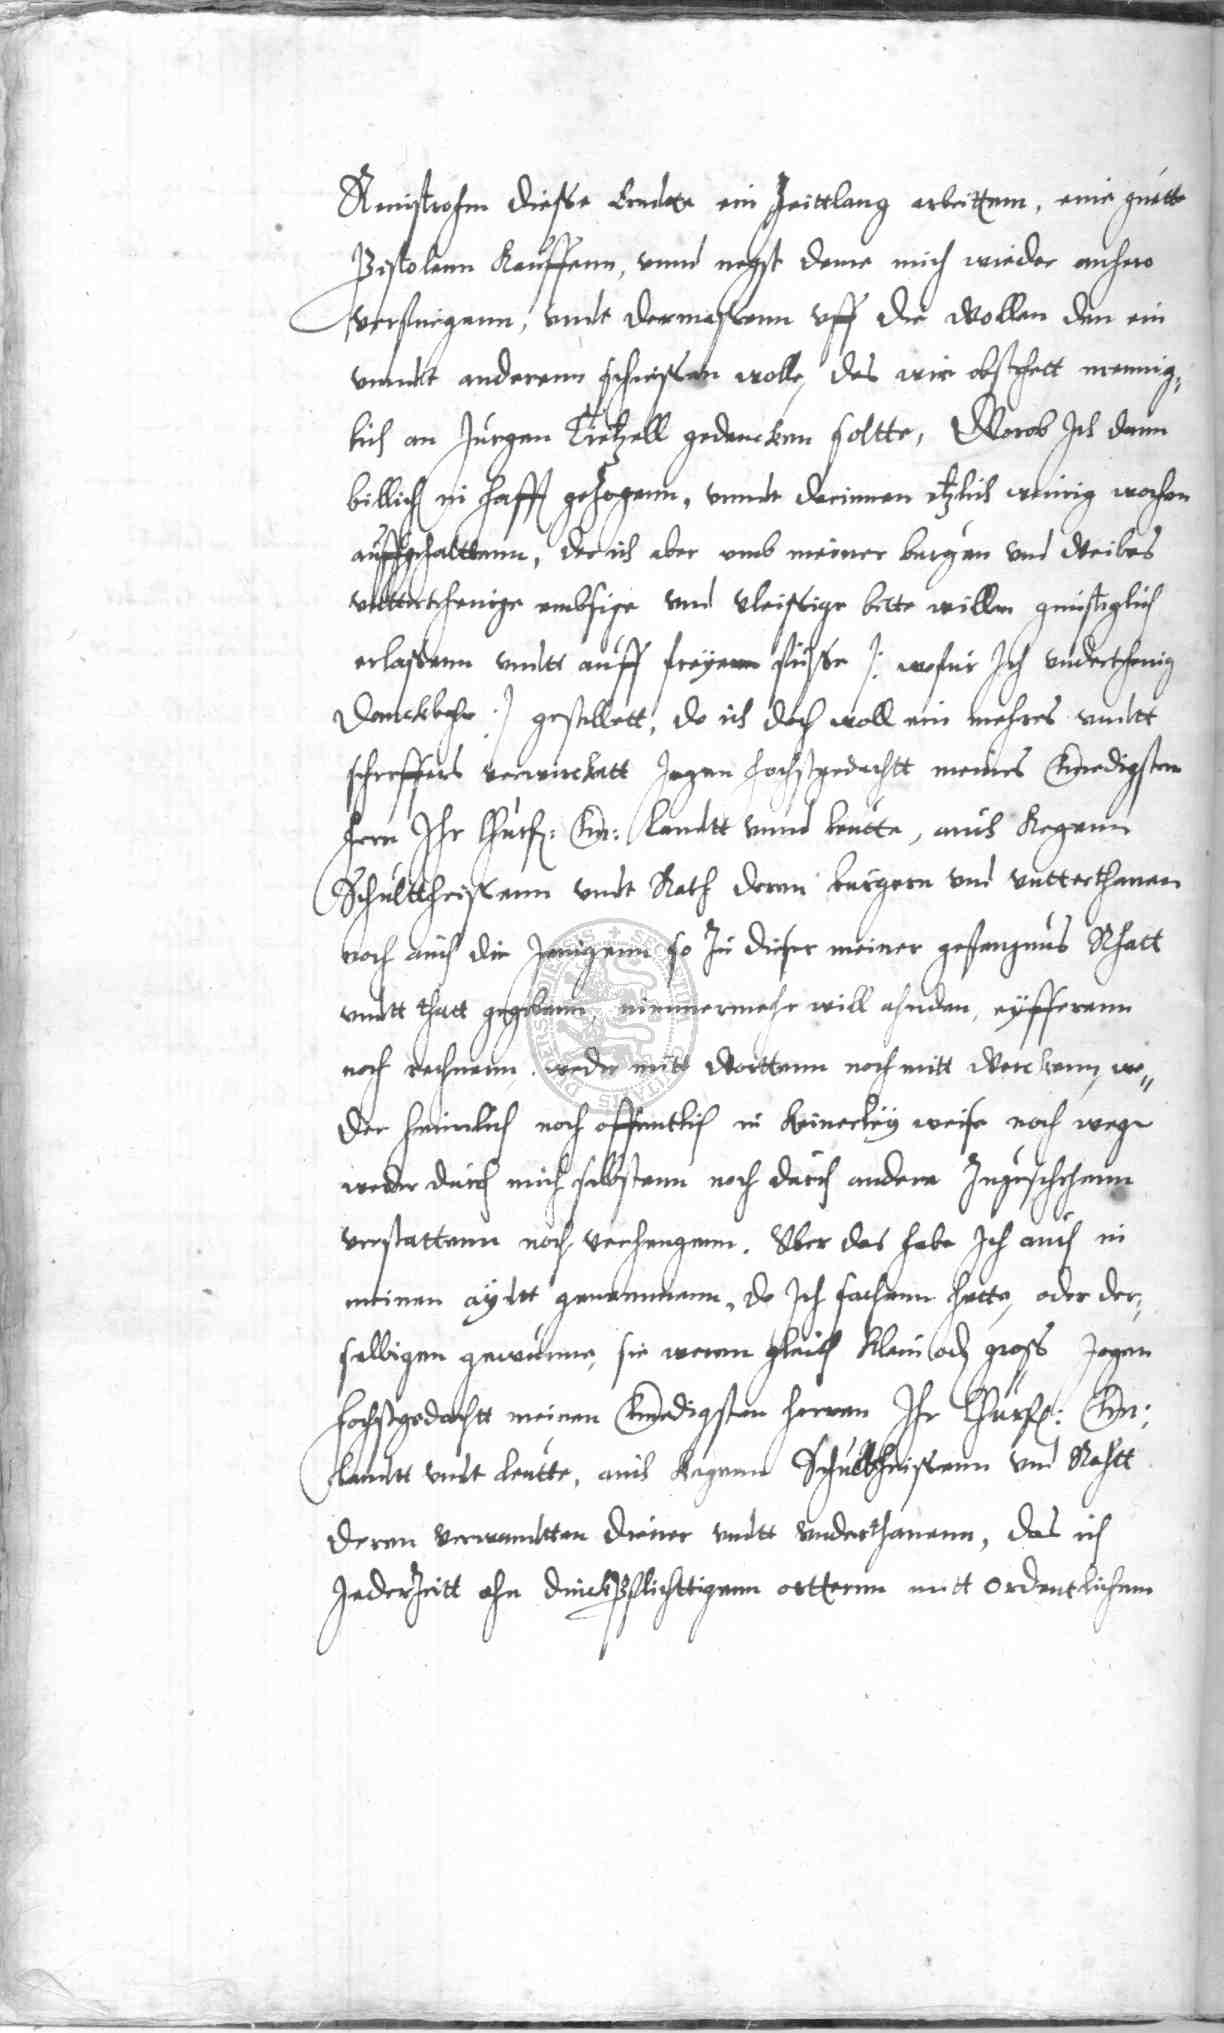 diesse Erndte ein Zeittlang arbeittenn, eine guette
Pistolenn Kauffenn, vnnd negst deme mich wieder anhero
verfuegenn, vndt dermassenn vff die Wollen den ein
vnndt anderenn schiessen wolle, das wie obsthett mennig,
lich an Jurgen gedencken soltte, Worob Ich dann
billich in hafft gezogenn, vnndt darinnen etzlich wenig wochen
auffgehalttenn, der ich aber vmb meiner burgen vnd Weibes
vntterthenige embsige vnd vleissige bitte willen gunstiglich
erlassenn vndtt auff freyenn fusse /: wofur Ich vnderthenig
Danckbahr :/ gestellett, do ich doch woll ein mehres vndtt
scherffers verwirckett Jegen hochstgedachtt meines Gnedigsten
hern Ihr Churf: Gn: Landtt vnnd Leutte, auch Kegenn
Schulttheissenn vndt Rath deren burgern vnd vntterthanen
noch auch die Jenigenn so Zu dieser meiner gefengnus Rhatt
vndtt thatt gegebenn, nimmermehr will ahnden, eyfferenn
noch rechnenn, weder mitt Worttenn noch mitt Werckenn, we,,
der heimlich noch offentlich in keinerley weise noch wege
weder durch mich selbstenn noch durch andere Zugeschehenn
verstattenn noch verhengenn. Vber das habe Ich auch in
meinen aydtt genommenn, do Ich sachenn hette, oder der,
selbigen gewunne, sie weren gleich klein oder gross Jegen
hochstgedachtt meinen Gnedigsten herren Ihr Churf: Gn:
Landtt vndt Leutte, auch Kegenn Schulttheissenn vnd Rahtt
deren verwandtten diener vndtt vnderthanenn, das ich
Jederzeitt ahn dinckpflichttigenn orttenn mitt ordentlichem